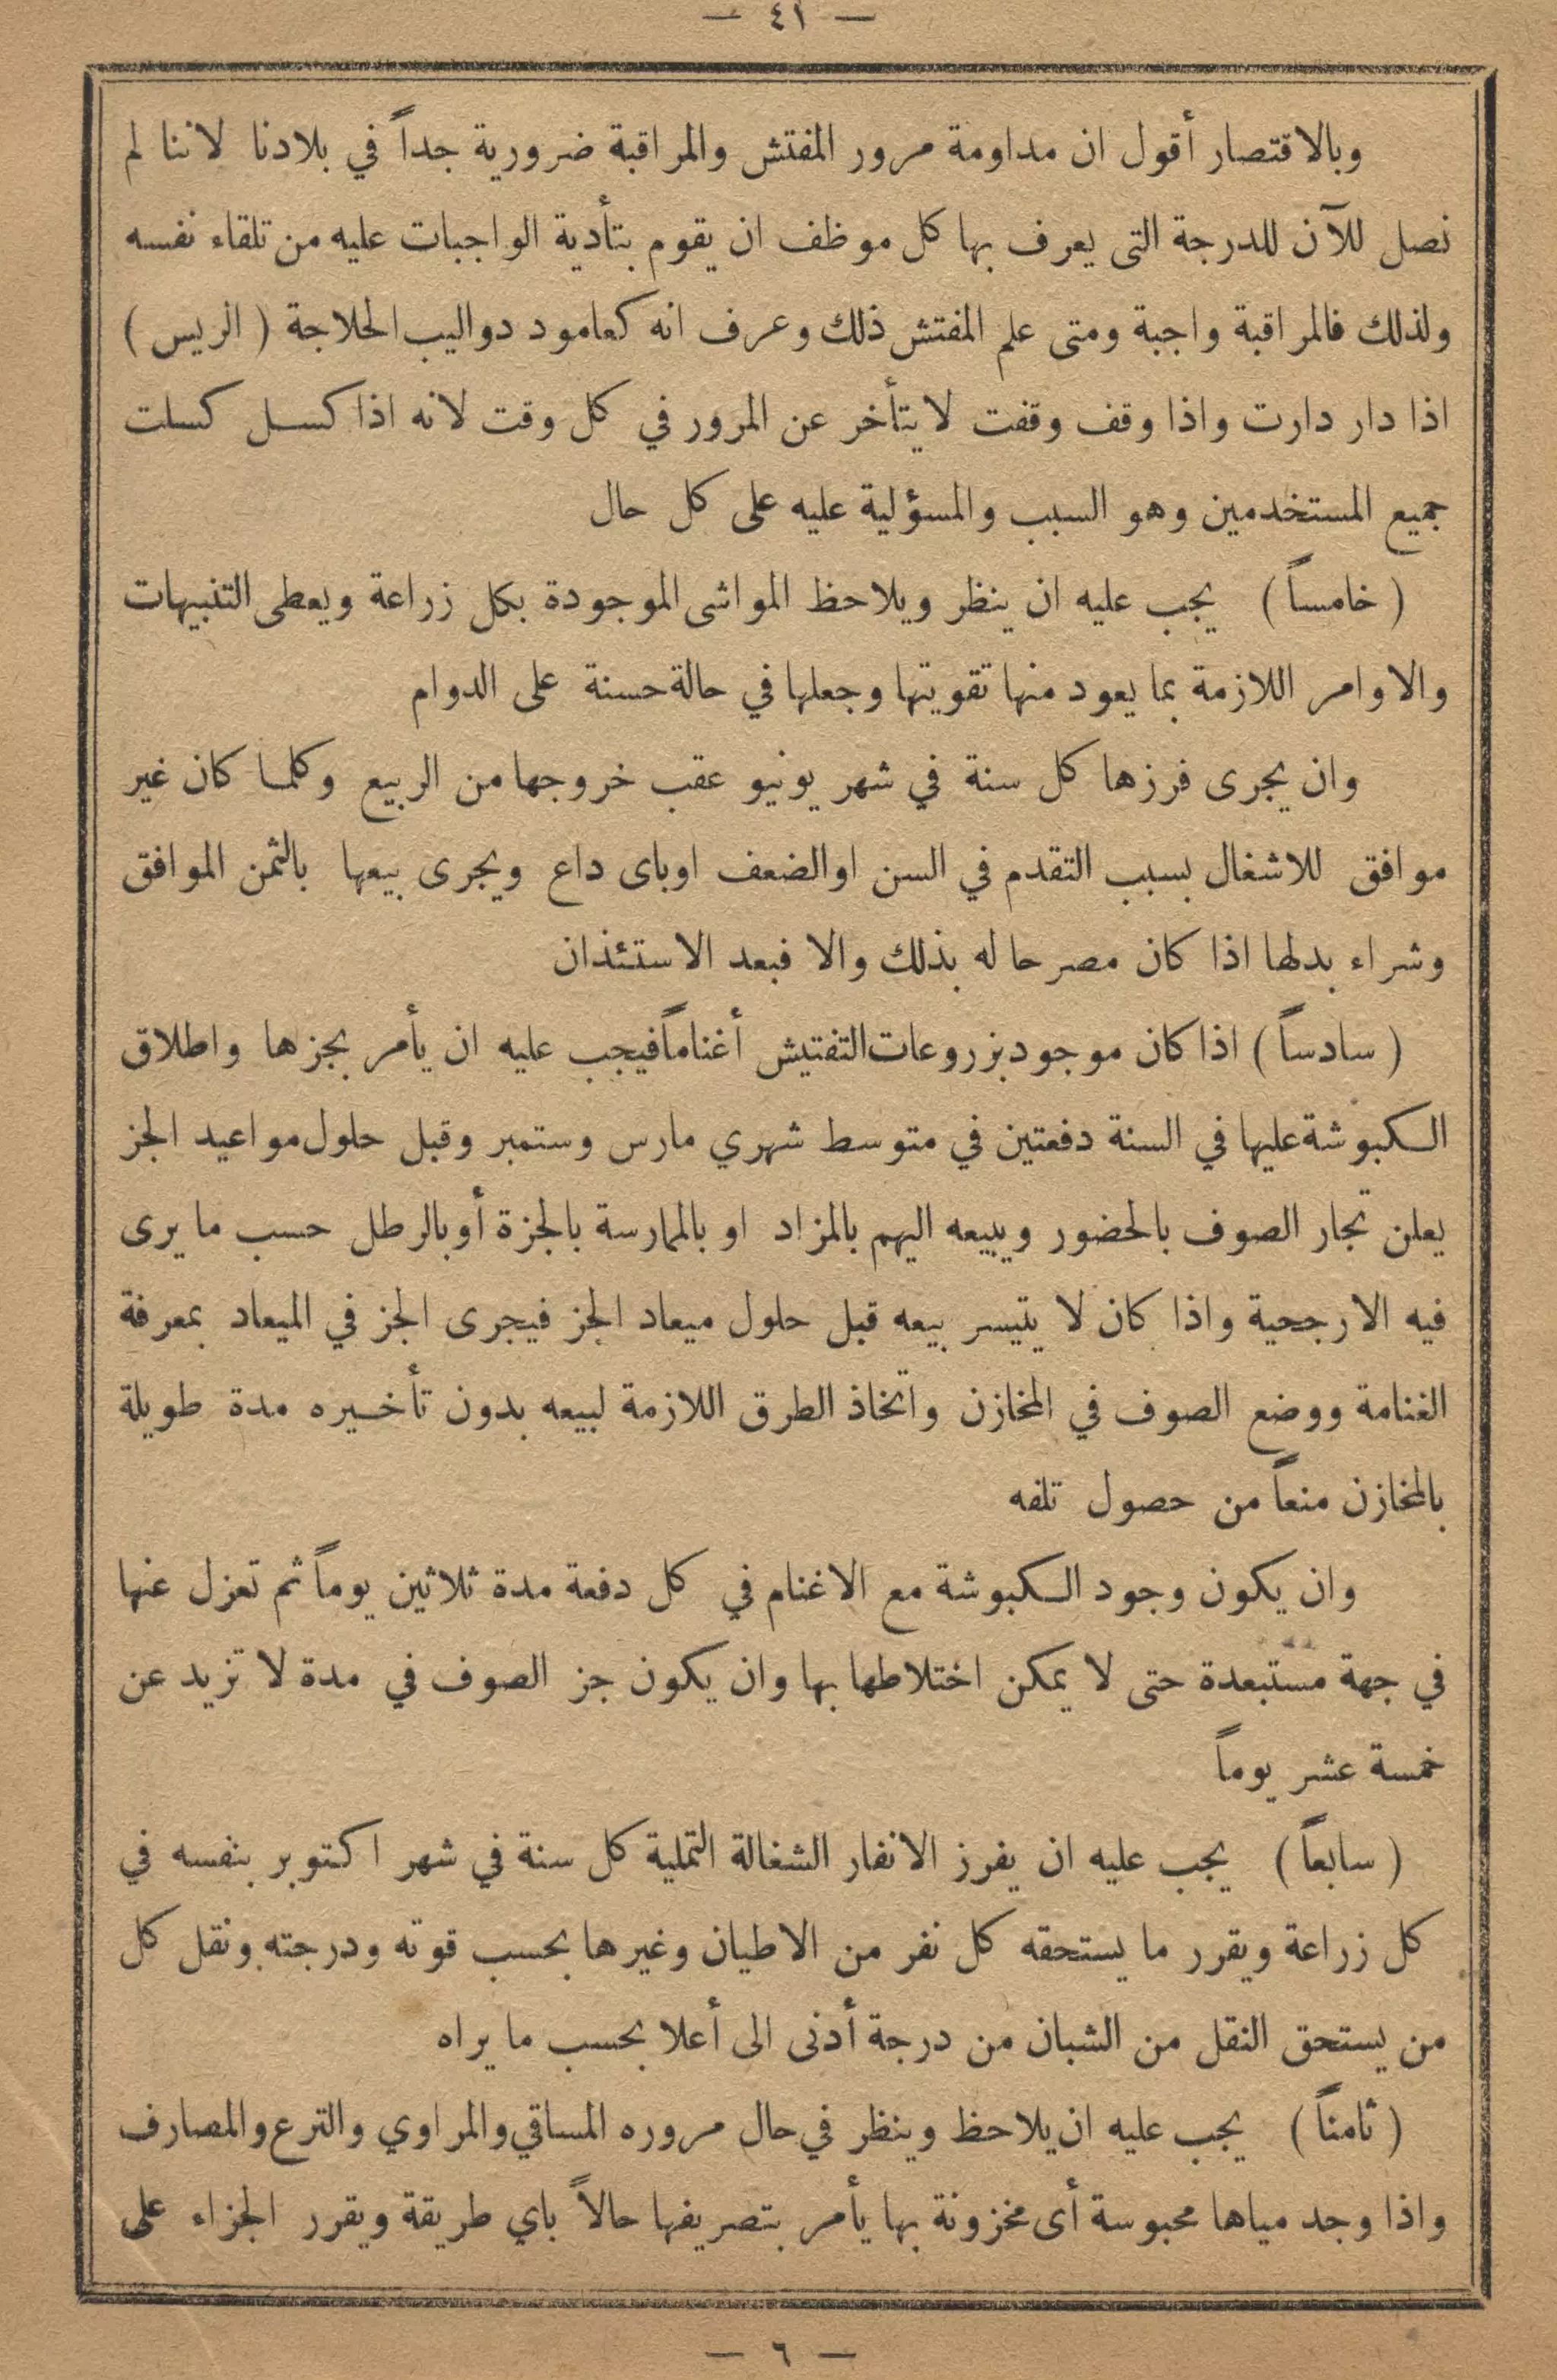 — ٤١ —
وبالاقتصار أقول ان مداومة مرور المفتش والمراقبة ضرورية جداً في بلادنا لاننا لم
نصل للآن للدرجة التى يعرف بها كل موظف ان يقوم بتأدية الواجبات عليه من تلقاء نفسه
ولذلك فالمراقبة واجبة ومتى علم المفتش ذلك وعرف انه كعامود دواليب الحلاجة ( الريس )
اذا دار دارت واذا وقف وقفت لا يتأخر عن المرور في كل وقت لانه اذا كسل كسلت
جميع المستخدمين وهو السبب والمسؤلية عليه على كل حال
( خامساً ) يجب عليه ان ينظر ويلاحظ المواشى الموجودة بكل زراعة ويعطى التنبيهات
والاوامر اللازمة بما يعود منها تقويتها وجعلها في حالة حسنة على الدوام
وان يجرى فرزها كل سنة في شهر يونيو عقب خروجها من الربيع وكلما كان غير
موافق للاشغال بسبب التقدم في السن او الضعف او باى داع ويجرى بيعها بالثمن الموافق
وشراء بدلها اذا كان مصرحا له بذلك والا فبعد الاستئذان
( سادساً ) اذا كان موجود بمزروعات التفتيش أغناماً فيجب عليه ان يأمر بجزها واطلاق
الكبوشة عليها في السنة دفعتين في متوسط شهري مارس وستمبر وقبل حلول مواعيد الجز
يعلن تجار الصوف بالحضور ويبيعه اليهم بالمزاد او بالممارسة بالجزة أو بالرطل حسب ما يرى
فيه الارجحية واذا كان لا يتيسر بيعه قبل حلول ميعاد الجز فيجرى الجز في الميعاد بمعرفة
الغنامة ووضع الصوف في المخازن واتخاذ الطرق اللازمة لبيعه بدون تأخيره مدة طويلة
بالمخازن منعاً من حصول تلفه
وان يكون وجود الكبوشة مع الاغنام في كل دفعة مدة ثلاثين يوماً ثم تعزل عنها
في جهة مستبعدة حتى لا يمكن اختلاطها بها وان يكون جز الصوف في مدة لا تزيد عن
خمسة عشر يوماً
( سابعاً ) يجب عليه ان يفرز الانفار الشغالة التملية كل سنة في شهر اكتوبر بنفسه في
كل زراعة ويقرر ما يستحقه كل نفر من الاطيان وغيرها بحسب قوته ودرجته ونقل كل
من يستحق النقل من الشبان من درجة أدنى الى أعلا بحسب ما يراه
( ثامناً ) يجب عليه ان يلاحظ وينظر في حال مروره المساقي والمراوي والترع والمصارف
واذا وجد مياها محبوسة أى مخزونة بها يأمر بتصريفها حالاً باي طريقة ويقرر الجزاء على
— ٦ —